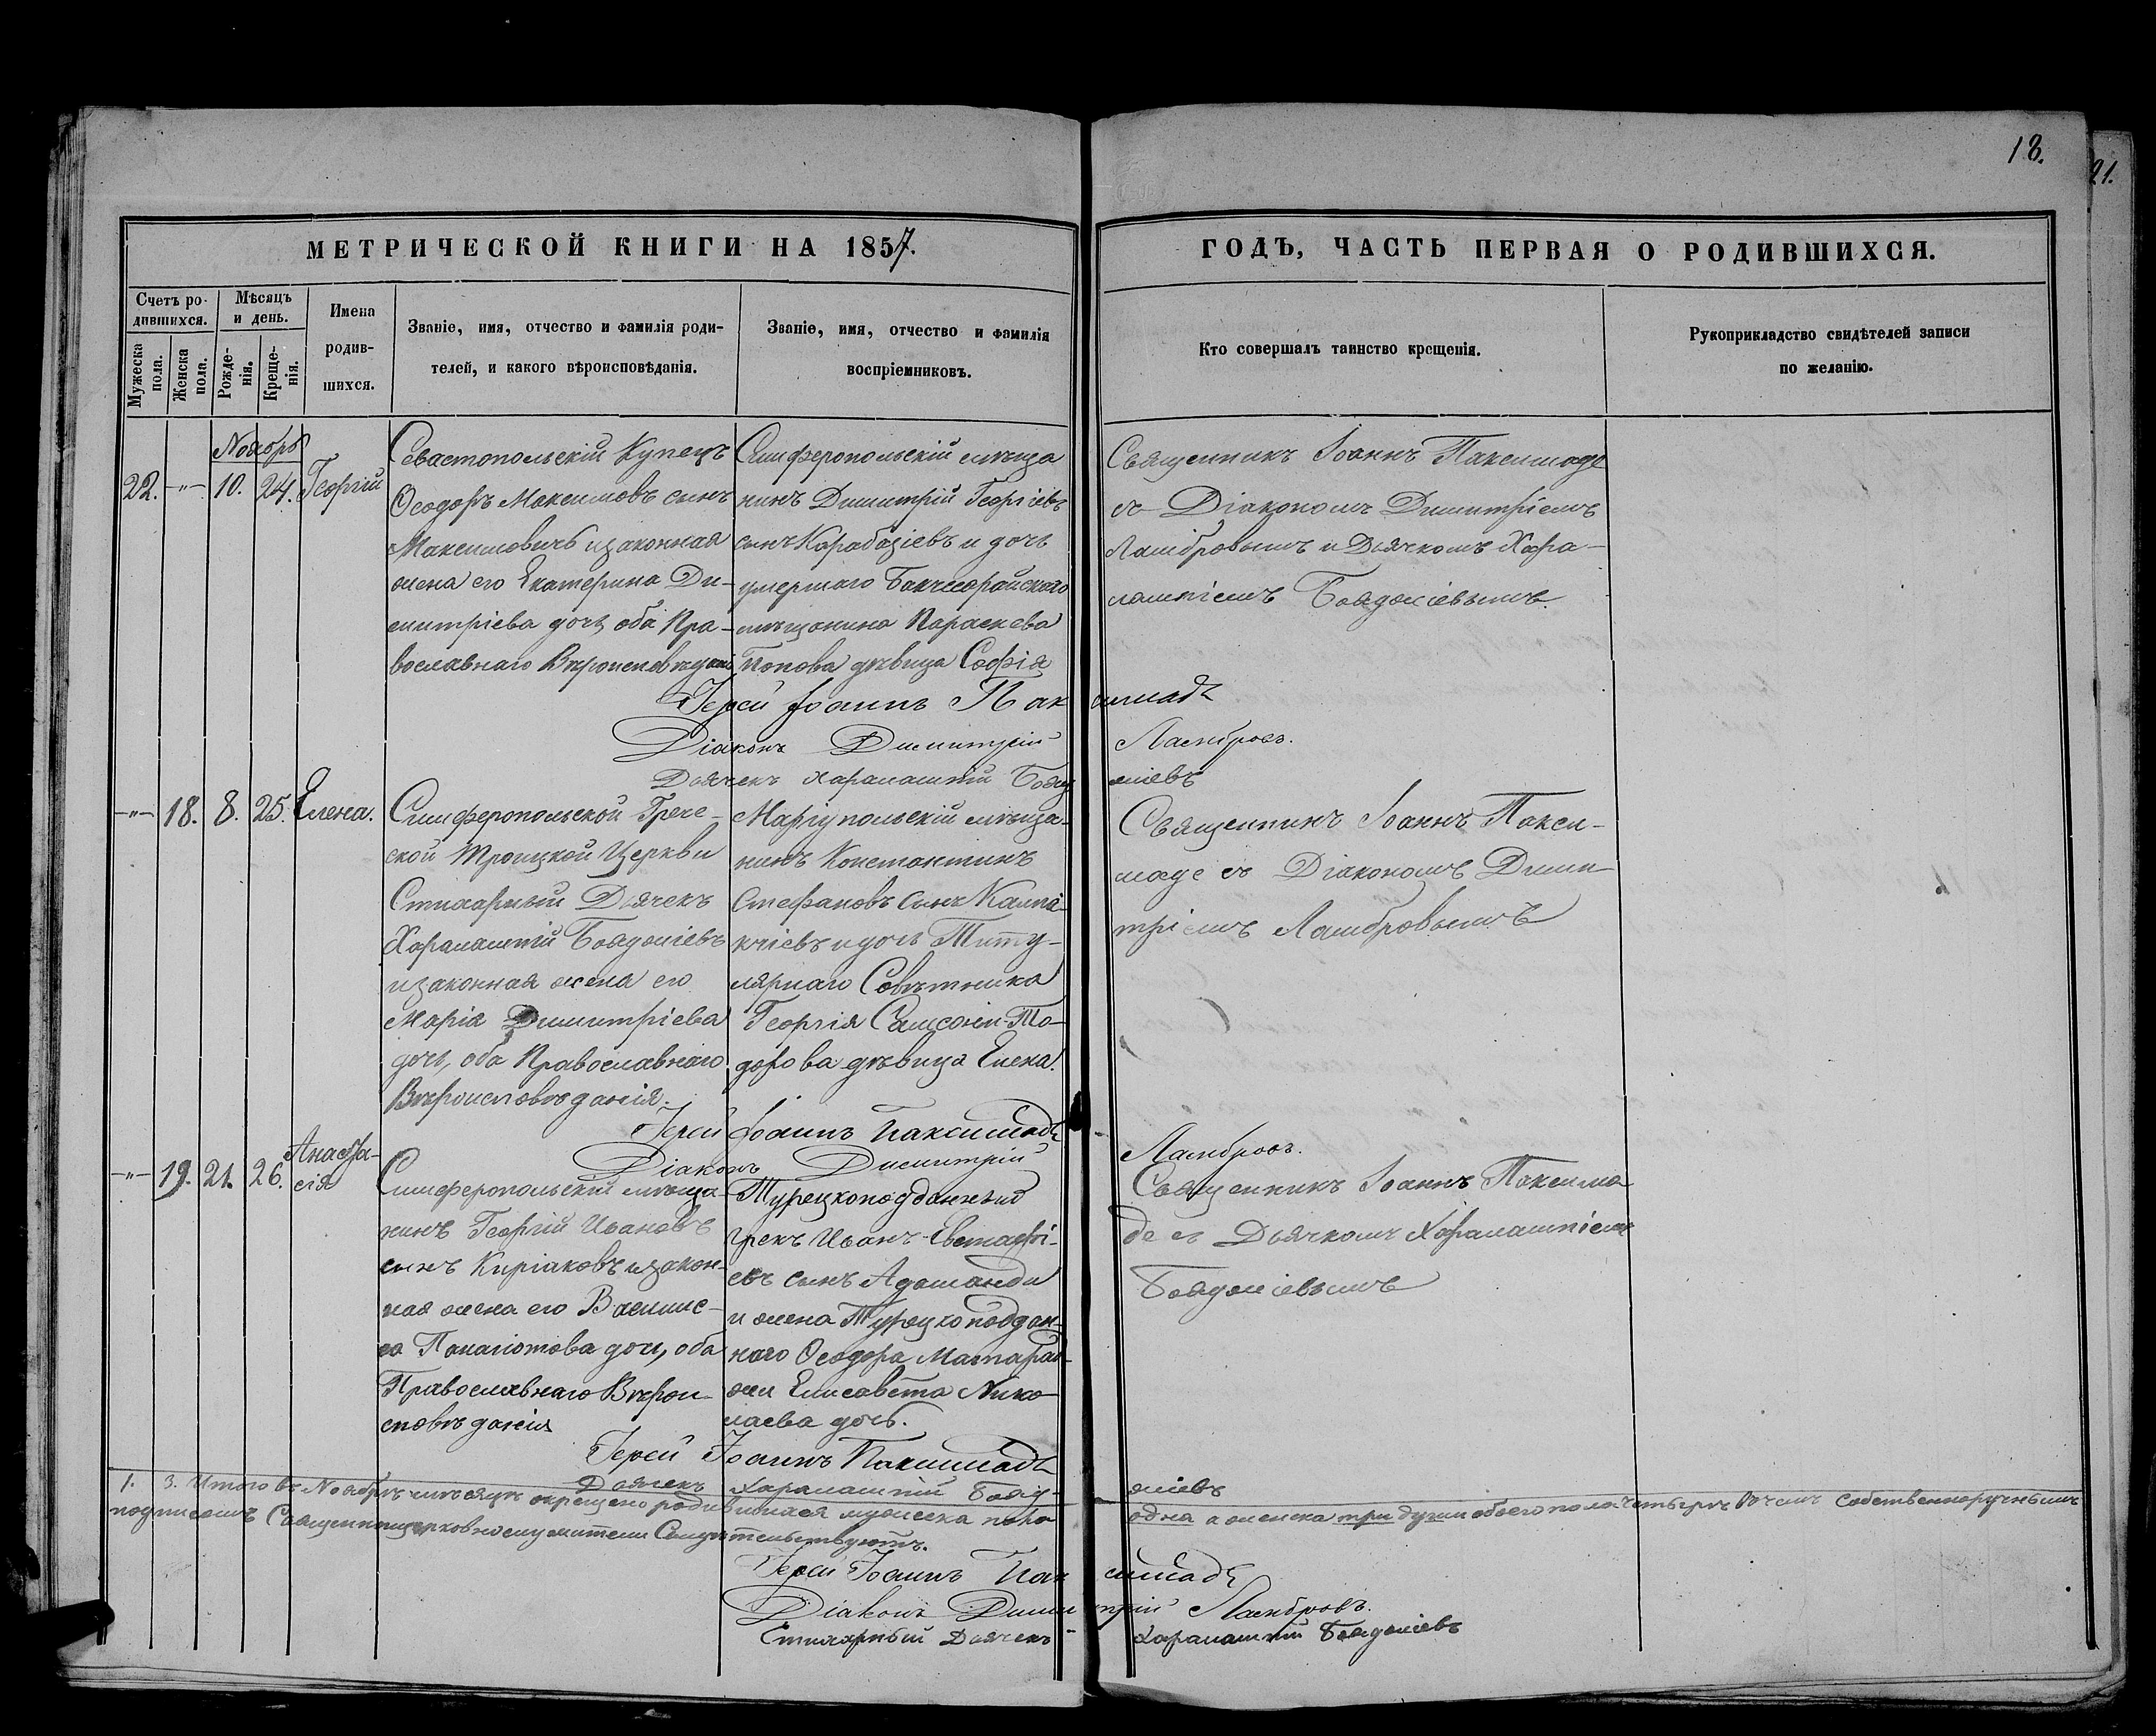 18.
21.
МЕТРИЧЕСКОЙ КНИГИ НА 1857.
ГОДЪ, ЧАСТЬ ПЕРВАЯ О РОДИВШИХСЯ.
Счетъ ро-
дившихся.
Мужеска пола.
Женска пола.
Мѣсяцъ и день.
Рожде-
нія.
Креще-
нія.
Имена
родив-
шихся.
Званіе, имя, отчество и фамилія роди-
телей, и какого вѣроисповѣданія.
Званіе, имя, отчество и фамилія
воспріемниковъ.
Кто совершалъ таинство крещенія.
Рукоприкладство свидѣтелей записи
по желанію.
Ноябрь
22. -"- 10. 24. Георгій
Севастопольскій Купецъ
Ѳеодоръ Максимовъ сынъ
Максимовичъ и законная
жена его Екатерина Ди-
митріева дочь оба Пра-
вославнаго Вѣроисповѣданія
Симферопольскій мѣща
нинъ Димитрій Георгіевъ
сынъ Карабазіевъ и дочь
умершаго Бакчисарайскаго
мѣщанина Параскева
Попова дѣвица Софія
Священникъ Іоаннъ Паксимаде
съ Діакономъ Димитріемъ
Ламбровымъ и Дьячкомъ Хара-
лампіемъ Бояджіевымъ.
Іерей Іоаннъ Паксимадѣ
Діаконъ Димитрій Ламбровъ.
Дьячекъ Харалампій Бояджіевъ
-"- 18. 8. 25. Елена.
Симферопольской Грече-
ской Троицкой Церкви
Стихарный Дьячекъ
Харалампій Бояджіевъ
и законная жена его
Марія Димитріева
дочь, оба Православнаго
Вѣроисповѣданія.
Маріупольскій мѣща-
нинъ Константинъ
Стефановъ сынъ Калпа-
кчіевъ и дочь Титу-
лярнаго Совѣтника
Георгія Самсони-То-
дорова дѣвица Елена.
Священникъ Іоаннъ Пакси-
маде съ Діакономъ Дими-
тріемъ Ламбровымъ
Іерей Іоаннъ Паксимадѣ
Діаконъ Димитрій Ламбровъ.
-"- 19. 21. 26. Анаста-
сія
Симферопольскій мѣща-
нинъ Георгій Ивановъ
сынъ Киріаковъ и закон-
ная жена его
Панагіотова дочь, оба
Православнаго Вѣрои-
сповѣданія
Турецкоподданный
Грекъ Иванъ Евстафі-
евъ сынъ
и жена Турецкоподдан-
наго Ѳеодора
Елисавета Нико-
лаева дочь.
Священникъ Іоаннъ Паксима-
де съ Дьячкомъ Харалампіемъ
Бояджіевымъ
Іерей Іоаннъ Паксимадѣ
Дьячекъ Харалампій Бояджіевъ
1. 3. Итого въ Ноябрѣ мѣсяцѣ окрещено родившихся мужеска пола одна а женска три душъ обоего пола четыре въ чемъ Собственноручнымъ
подписомъ Священноцерковнослужители Свидѣтельствуютъ.
Іерей Іоаннъ Паксимадѣ
Діаконъ Димитрій Ламбровъ.
Стихарный Дьячекъ Харалампій Бояджіевъ